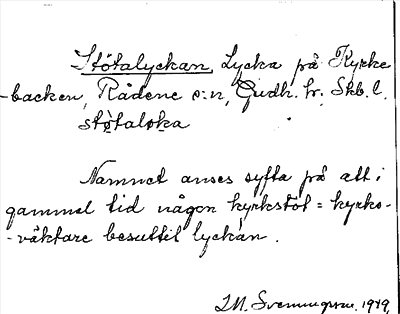 Stötalyckan, Lycka på Kyrke
-backen, Rådene s:n, Gudh. hr, Skb. l.
støtaloka
Namnet anses syfta på att i
gammel tid någon kyrkstöt = kyrko-
-väktare besuttit lyckan.
I.M. Svenningsson. 1949.